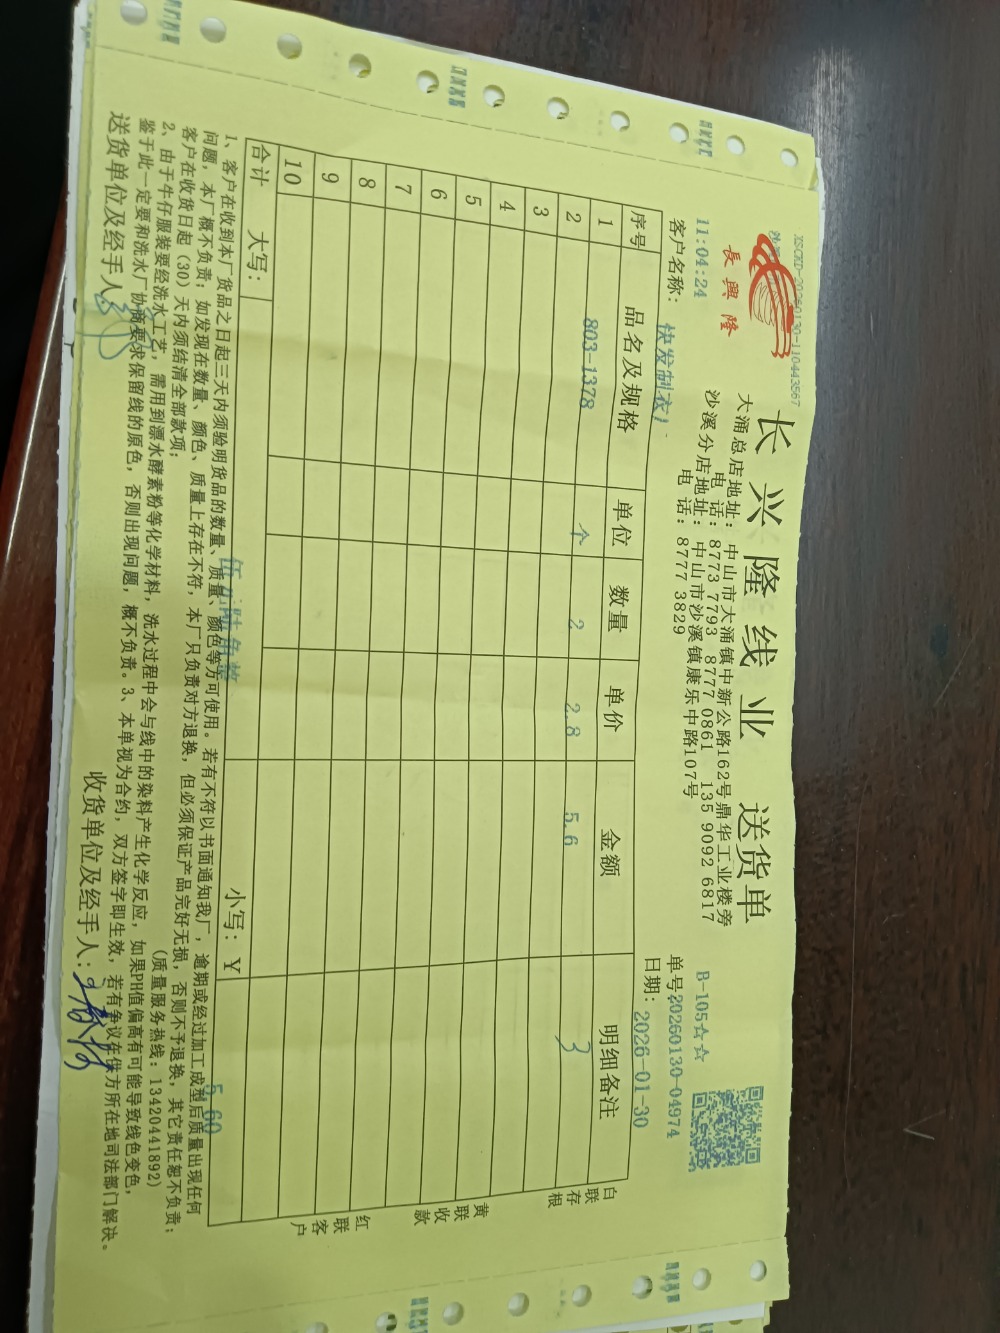 XSCKD-20260130-110443567
長興隆
长兴隆线业 送货单
大涌总店地址：中山市大涌镇中新公路162号鼎华工业楼旁
电 话：8773 7793 8777 0861 135 9092 6817
沙溪分店地址：中山市沙溪镇康乐中路107号
电 话：8777 3829
11:04:24
B-105☆☆
单号:20260130-04974
客户名称：快发制衣厂
日期：2026-01-30
序号 品名及规格 单位 数量 单价 金额 明细备注
1 803-1378 个 2 2.8 5.6 3
2
3
4
5
6
7
8
9
10
合计 大写：伍元陆角整 小写：Y 5.60
白联存根
黄联收款
红联客户
1、客户在收到本厂货品之日起三天内须验明货品的数量、质量、颜色等方可使用。若有不符以书面通知我厂，逾期或经过加工成型后质量出现任何
问题，本厂概不负责；如发现在数量、颜色、质量上存在不符，本厂只负责对方退换，但必须保证产品完好无损，否则不予退换，其它责任恕不负责；
客户在收货日起（30）天内须结清全部款项；(质量服务热线：13420441892)
2、由于牛仔服装要经洗水工艺，需用到漂水酵素粉等化学材料，洗水过程中会与线中的染料产生化学反应，如果PH值偏高有可能导致线色变色，
鉴于此一定要和洗水厂协商要求保留线的原色，否则出现问题，概不负责。3、本单视为合约，双方签字即生效，若有争议在供方所在地司法部门解决。
送货单位及经手人：
收货单位及经手人：